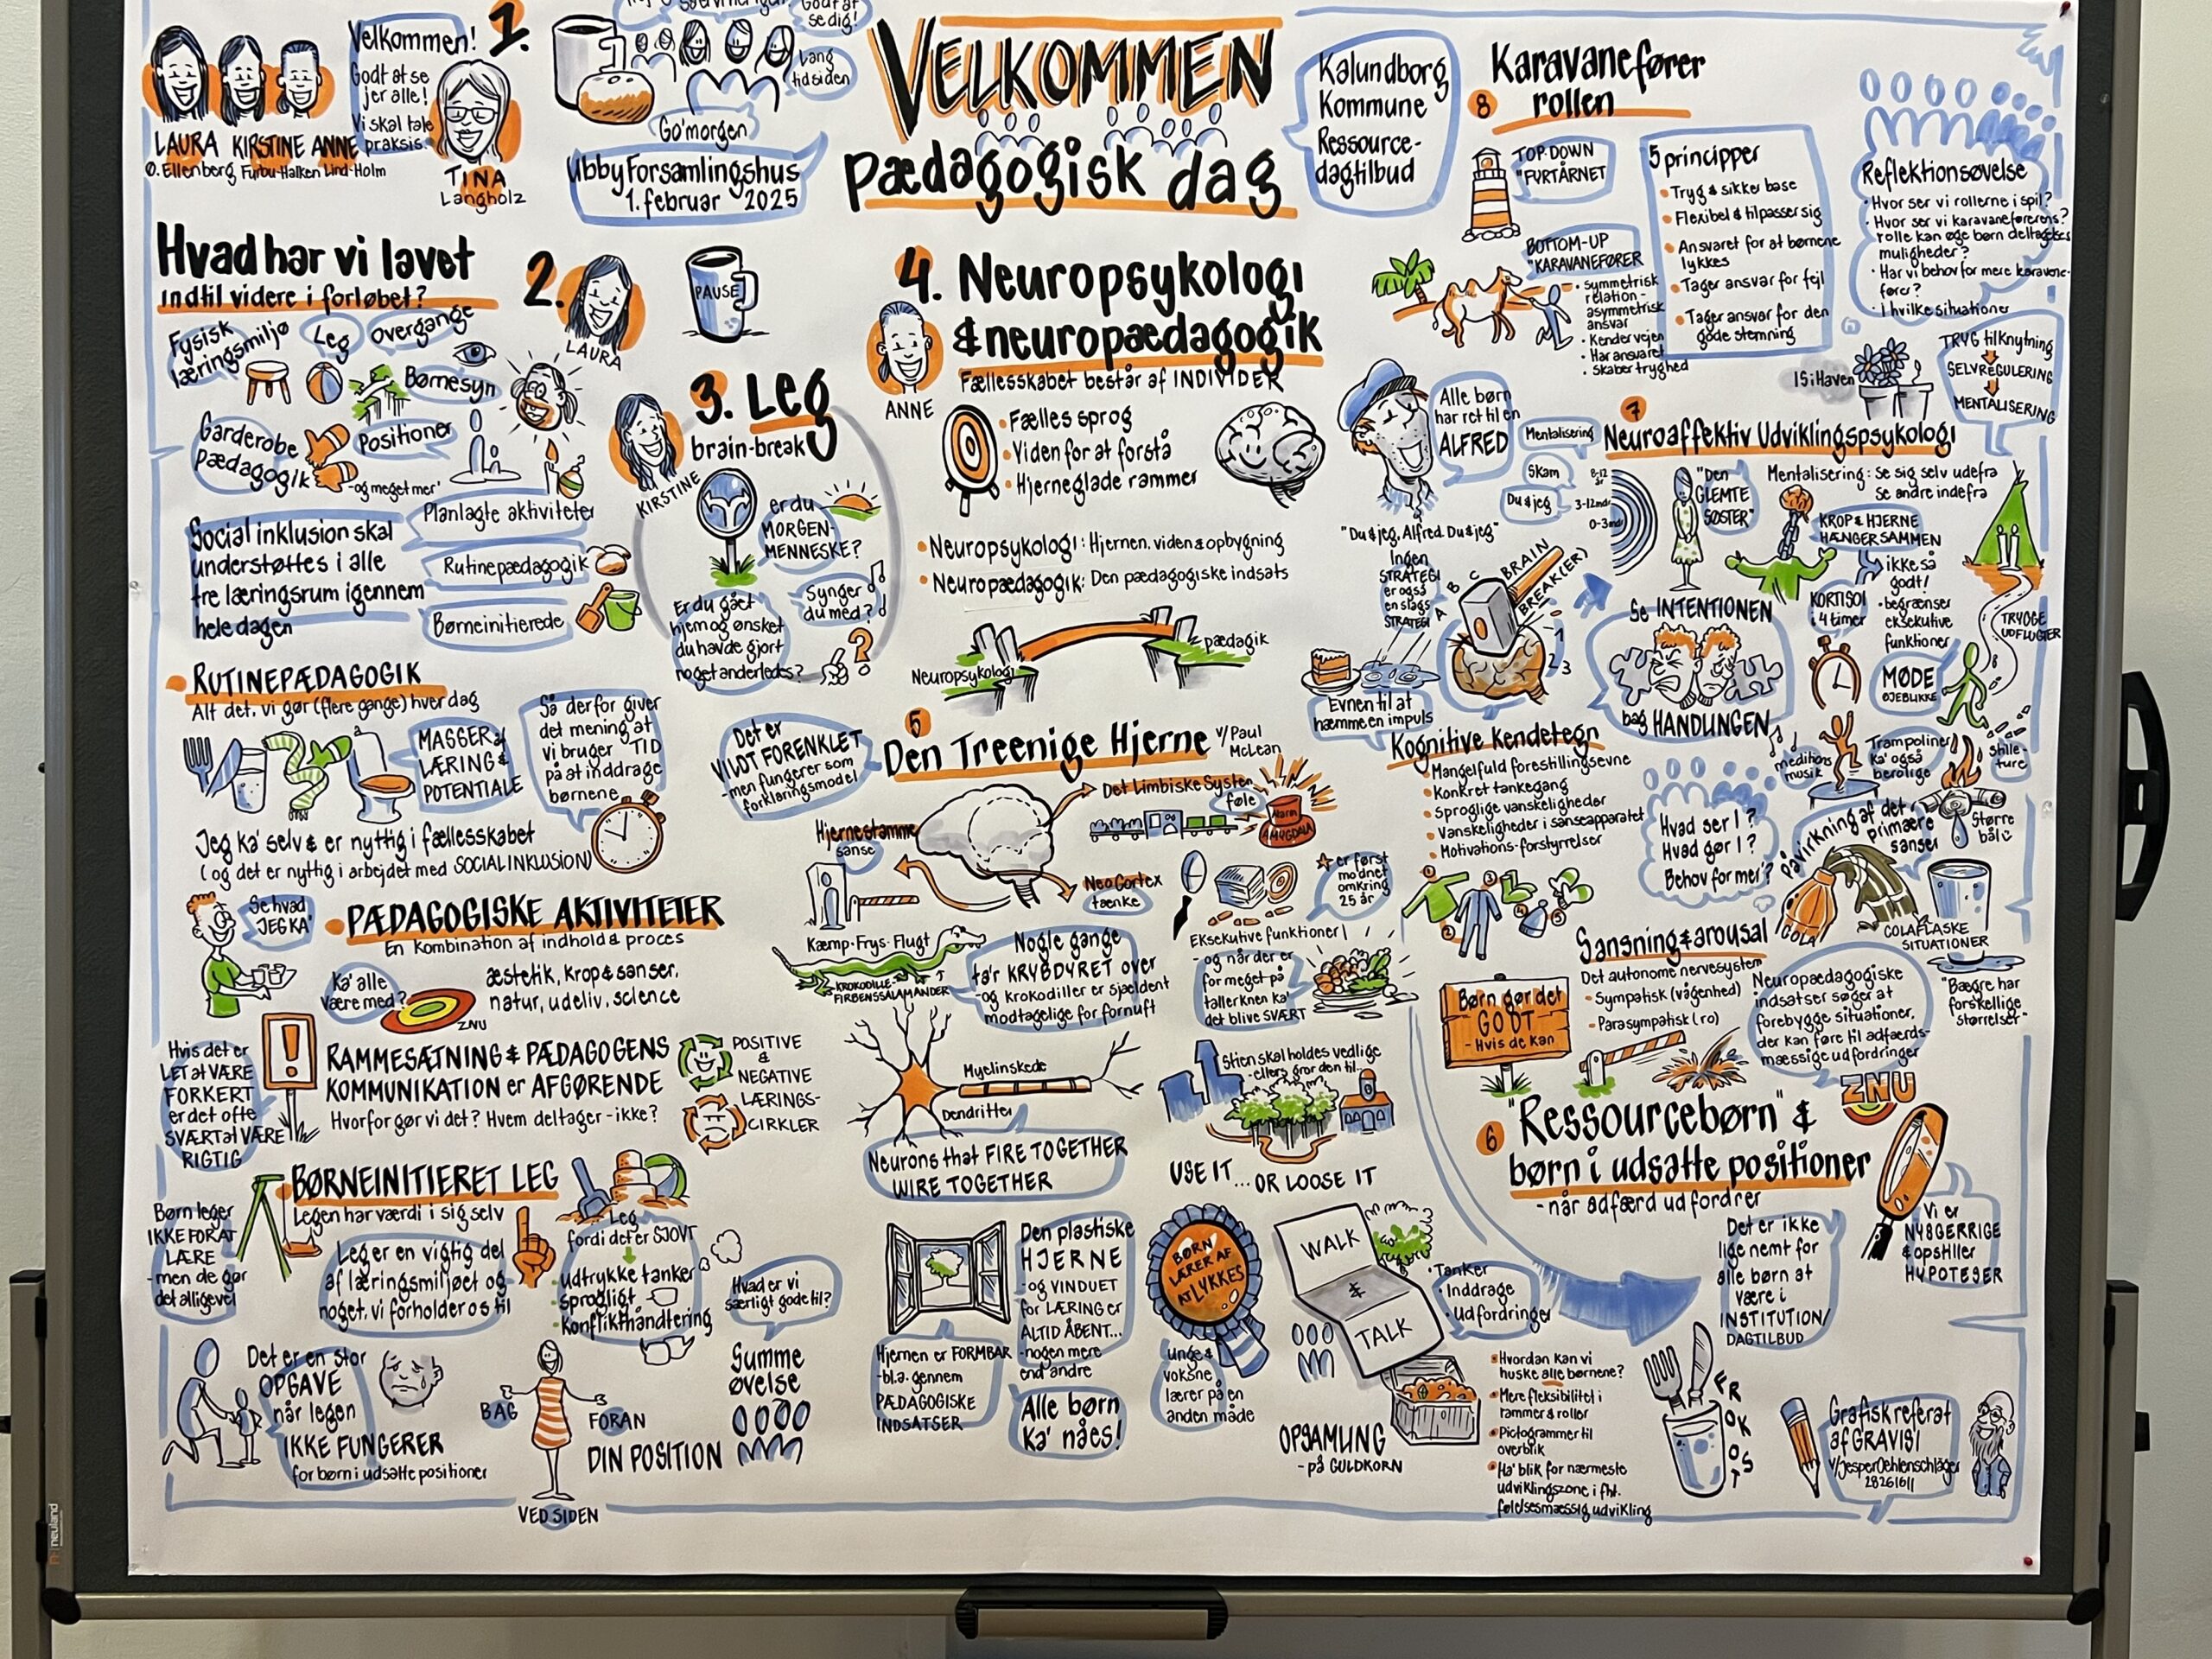 Velkommen!
Godt at se
jer alle!
Vi skal tale
praksis.
LAURA KIRSTINE ANNE
Ø. Ellenberg Furbu-Halken Lind-Holm
1.
TINA
Langholz
Godt at
se dig!
Lang
tid siden
Go'morgen
Ubby Forsamlingshus
1. februar 2025
VELKOMMEN
Pædagogisk dag
Kalundborg
Kommune
Ressource-
dagtilbud
Hvad har vi lavet
indtil videre i forløbet?
Fysisk
læringsmiljø
Leg
overgange
Børnesyn
Garderobe
pædagogik
Positioner
-og meget mer'
Social inklusion skal
understøttes i alle
tre læringsrum igennem
hele dagen
Planlagte aktiviteter
Rutinepædagogik
Børneinitierede
2.
LAURA
PAUSE
3. Leg
brain-break
KIRSTINE
er du
MORGEN-
MENNESKE?
Synger
du med?
Er du gået
hjem og ønsket
du havde gjort
noget anderledes?
?
4. Neuropsykologi
& neuropædagogik
ANNE
Fællesskabet består af INDIVIDER
• Fælles sprog
• Viden for at forstå
• Hjerneglade rammer
• Neuropsykologi: Hjernen, viden & opbygning
• Neuropædagogik: Den pædagogiske indsats
Neuropsykologi
pædagik
• RUTINEPÆDAGOGIK
Alt det, vi gør (flere gange) hver dag
MASSER af
LÆRING &
POTENTIALE
Så derfor giver
det mening at
vi bruger TID
på at inddrage
børnene
Jeg ka' selv & er nyttig i fællesskabet
(og det er nyttig i arbejdet med SOCIAL INKLUSION)
"Se hvad
JEG KA'"
• PÆDAGOGISKE AKTIVITETER
En kombination af indhold & proces
Ka' alle
være med?
ZNU
æstetik, krop & sanser,
natur, udeliv, science
Hvis det er
LET at VÆRE
FORKERT
er det ofte
SVÆRT at VÆRE
RIGTIG
!
RAMMESÆTNING & PÆDAGOGENS
KOMMUNIKATION er AFGØRENDE
Hvorfor gør vi det? Hvem deltager - ikke?
POSITIVE
&
NEGATIVE
LÆRINGS-
CIRKLER
• BØRNEINITIERET LEG
Legen har værdi i sig selv
Børn leger
IKKE FOR AT
LÆRE
-men de gør
det alligevel
Leg er en vigtig del
af læringsmiljøet og
noget, vi forholder os til
Leg
fordi det er SJOVT
• udtrykke tanker
sprogligt
• Konflikthåndtering
Hvad er vi
særligt gode til?
Det er en stor
OPGAVE
når legen
IKKE FUNGERER
for børn i udsatte positioner
BAG
FORAN
DIN POSITION
VED SIDEN
Summe
øvelse
Det er
VILDT FORENKLET
-men fungerer som
forklaringsmodel
5
Den Treenige Hjerne
v/Paul
McLean
Det Limbiske System
føle
Alarm
AMYGDALA
Hjernestamme
sanse
NeoCortex
tænke
er først
modnet
omkring
25 år
Kæmp · Frys · Flugt
KROKODILLE-
FIRBENSSALAMANDER
Nogle gange
ta'r KRYBDYRET over
-og krokodiller er sjældent
modtagelige for fornuft
Eksekutive funktioner!
- og når der er
for meget på
tallerknen ka'
det blive SVÆRT
Myelinskede
Dendritter
Neurons that FIRE TOGETHER
WIRE TOGETHER
Stien skal holdes vedlige
-ellers gror den til...
USE IT... OR LOOSE IT
Den plastiske
HJERNE
-og VINDUET
for LÆRING er
ALTID ÅBENT...
-nogen mere
end andre
Hjernen er FORMBAR
-bl.a. gennem
PÆDAGOGISKE
INDSATSER
Alle børn
Ka' nåes!
BØRN
LÆRER AF
AT LYKKES
unge &
voksne
lærer på en
anden måde
WALK
&
TALK
• Tanker
• Inddrage
• Udfordringer
OPSAMLING
- på GULDKORN
6
"Ressourcebørn" &
børn i udsatte positioner
-når adfærd udfordrer
Det er ikke
lige nemt for
alle børn at
være i
INSTITUTION/
DAGTILBUD
Vi er
NYSGERRIGE
& opstiller
HYPOTESER
• Hvordan kan vi
huske alle børnene?
• Mere fleksibilitet i
rammer & roller
• Pictogrammer til
overblik
• Ha' blik for nærmeste
udviklingszone i fht.
følelsesmæssig udvikling
FROKOST
Grafisk referat
af GRAVISI
v/Jesper Oehlenschläger
28261611
Alle børn
har ret til en
ALFRED
"Du & jeg, Alfred. Du & jeg"
Ingen
STRATEGI
er også
en slags
STRATEGI
A B C
BRAIN
BREAK(ER)
1
2
3
Evnen til at
hæmme en impuls
Kognitive kendetegn
• Mangelfuld forestillingsevne
• Konkret tankegang
• Sproglige vanskeligheder
• Vanskeligheder i sanseapparatet
• Motivations-forstyrrelser
Børn gør det
GODT
- Hvis de kan
Sansning & arousal
Det autonome nervesystem
- Sympatisk (vågenhed)
- Parasympatisk (ro)
Neuropædagogiske
indsatser søger at
forebygge situationer,
der kan føre til adfærds-
mæssige udfordringer
ZNU
7
Neuroaffektiv Udviklingspsykologi
Mentalisering
Skam
Du & jeg
8-12
år
3-12mdr
0-3mdr
"Den
GLEMTE
SØSTER"
Mentalisering: Se sig selv udefra
Se andre indefra
KROP & HJERNE
HÆNGER SAMMEN
ikke så
godt!
• begrænser
eksekutive
funktioner
KORTISOL
i 4 timer
Se INTENTIONEN
bag HANDLINGEN
MØDE
ØJEBLIKKE
TRYGGE
UDFLUGTER
medihøns
musik
Trampoliner
ka' også
berolige
Stille-
ture
Større
bål
Hvad ser I?
Hvad gør I?
Behov for mer'?
Påvirkning af det
primære
sanser
COLA
COLAFLASKE
SITUATIONER
"Bægre har
forskellige
størrelser"
8
Karavanefører
rollen
TOP-DOWN
"FYRTÅRNET
BOTTOM-UP
"KARAVANEFØRER
• symmetrisk
relation-
asymmetrisk
ansvar
• Kender vejen
• Har ansvaret
• Skaber tryghed
5 principper
• Tryg & sikker base
• Flexibel & tilpasser sig
• Ansvaret for at børnene
lykkes
• Tager ansvar for fejl
• Tager ansvar for den
gode stemning
Reflektionsøvelse
• Hvor ser vi rollerne i spil?
• Hvor ser vi karavaneførerens
rolle kan øge børn deltagelses
muligheder?
• Har vi behov for mere karavane-
fører?
• I hvilke situationer
IS i Haven
TRYG tilknytning
SELVREGULERING
MENTALISERING
neuland